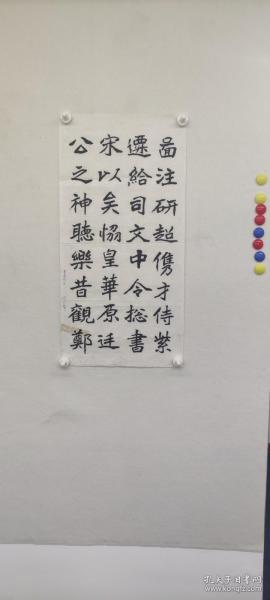 啚注研超儁才侍紫
遷給司文中令揔書
宋以矣惱皇華原迋
公之神聽樂昔觀鄭
孔夫子旧书网